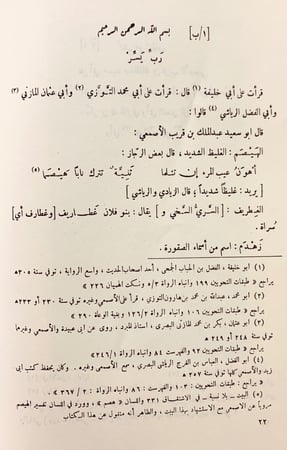 [١/ب] بسم الله الرحمن الرحيم
رَبِّ يَسِّرْ
قرأت على أبي خليفة (١) قال : قرأت على أبي محمد التَّوَّزي (٢) وأبي عثمان المازني (٣)
وأبي الفضل الرياشي (٤) قالوا :
قال ابو سعيد عبدالملك بن قريب الأصمعي :
الهَيْصَم : الغليظ الشديد ، قال بعض الرجّاز :
أهون عيب المرء إن تثلما ثنيّة تترك ناباً هيصما (٥)
[ يريد : غليظاً شديداً ؛ قال الزيادي والرياشي ]
الغِطريف : [ السَّرِيُّ السَّخي و ] يقال : بنو فلان غطاريف [ وغطارف أي ]
سُراة .
زَهْدَم : اسم من أسماء الصقورة .
(١) ابو خليفة ، الفضل بن الحباب الجمحي ، أحد اصحاب الحديث ، واسع الرواية ، توفي سنة ٣٠٥ هـ
يراجع « طبقات النحويين ١٩٩ وانباه الرواة ٥/٣ ونكت الهميان ٢٢٦ »
(٢) ابو محمد ، عبدالله بن محمد بن هارون التوزي ، قرأ على الأصمعي وغيره توفي سنة ٢٣٠ أو ٢٣٣ هـ
يراجع « طبقات النحويين ١٠٦ وانباه الرواة ١٢٦/٢ وبغية الوعاة ٢٩٠ »
(٣) ابو عثمان ، بكر بن محمد المازني البصري ، استاذ المبرد ، روى عن ابي عبيدة والأصمعي وغيرهما
توفي سنة ٢٤٨ أو ٢٤٩ هـ
يراجع « طبقات النحويين ٩٢ والفهرست ٨٤ وانباه الرواة ٢٤٦/١ »
(٤) ابو الفضل ، العباس بن الفرج الرياشي البصري ، سمع الأصمعي وغيره . وكان يحفظ كتب ابي
زيد والأصمعي كلها توفي سنة ٢٥٧ هـ
يراجع « طبقات النحويين : ١٠٣ الفهرست : ٨٦ وانباه الرواة : ٢ / ٣٦٧ » .
(٥) البيت - بلا نسبة - في الاشتقاق ٣٣١ واللسان « هصم » ، وورد في اللسان تفسير الهيصم
مروياً عن الأصمعي مع الاستشهاد بهذا البيت ، والظاهر أنه منقول عن هذا الكتاب
٢٢